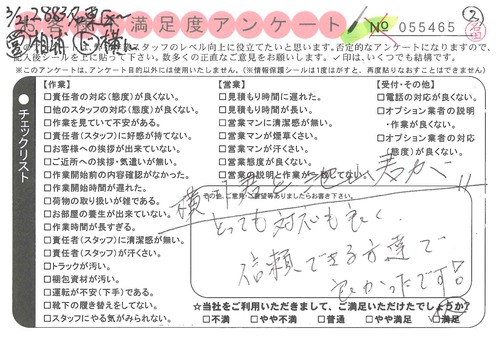 お客様満足度アンケート
№ 055465
スタッフのレベル向上に役立てたいと思います。否定的なアンケートになりますので、
記入後シールを上に貼って下さい。数多くの正直なご意見をお願いします。✓印は、いくつでも結構です。
※このアンケートは、アンケート目的以外には使用いたしません。(※情報保護シールは1度はがすと、再度貼りなおすことはできません。)
チェックリスト
【作業】
□責任者の対応(態度)が良くない。
□他のスタッフの対応(態度)が良くない。
□作業を見ていて不安がある。
□責任者(スタッフ)に好感が持てない。
□お客様への挨拶が出来ていない。
□ご近所への挨拶・気遣いが無い。
□作業開始前の内容確認がなかった。
□作業開始時間が遅れた。
□荷物の取り扱いが雑である。
□お部屋の養生が出来ていない。
□作業時間が長すぎる。
□責任者(スタッフ)に清潔感が無い。
□責任者(スタッフ)が汗くさい。
□トラックが汚い。
□梱包資材が汚い。
□運転が不安(下手)である。
□靴下の履き替えをしてない。
□スタッフにやる気がみられない。
【営業】
□見積もり時間に遅れた。
□見積もり時間が長い。
□営業マンに清潔感が無い。
□営業マンが煙草くさい。
□営業マンが汗くさい。
□営業態度が良くない。
□営業の説明と作業が一致してない。
【受付・その他】
□電話の対応が良くない。
□オプション業者の説明
・作業が良くない。
□オプション業者の対応
(態度)が良くない。
その他、ご意見・ご要望等ありましたらお書き下さい。
とっても対応も良く
信頼できる方達で
良かったです!
☆当社をご利用いただきまして、ご満足いただけたでしょうか?
□不満 □やや不満 □普通 □やや満足 □満足